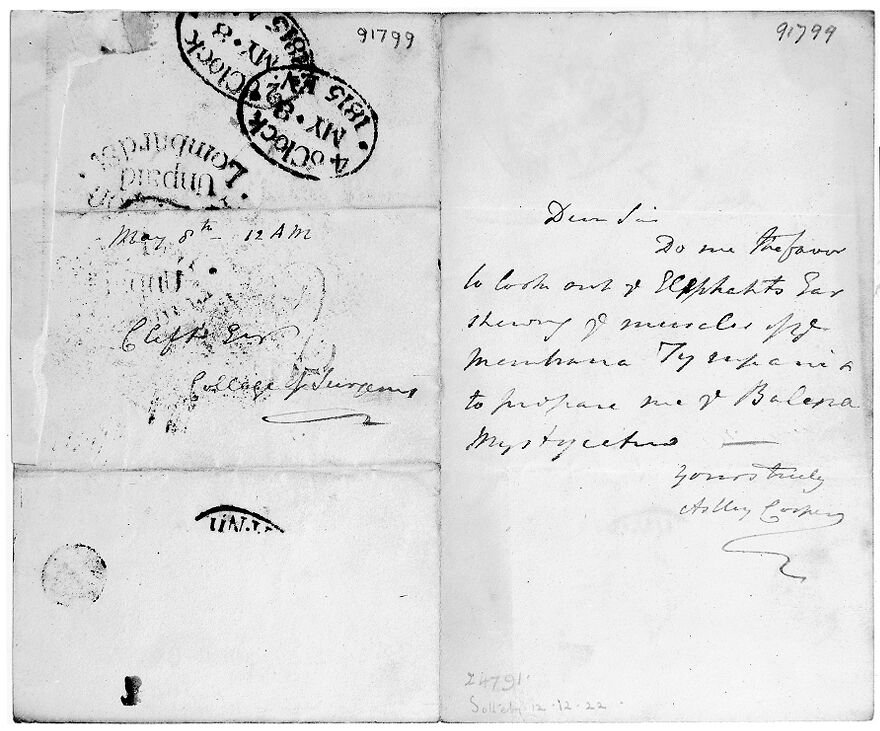 91799
4 oClock
MY·8
1815 EV
4 oClock
MY·8
1815 EV
Lombard St
Unpaid
May 8th 12 AM
Clift Esqr
College of Surgeons
UN
91799
Dear Sir
Do me the favor
to look out ye Elephants Ear
shewing ye muscles of ye
Membrana Tympani &
to prepare me ye Balena
Mysticetus —
Yours truly
Astley Cooper
24791
Sotheby 12·12·22